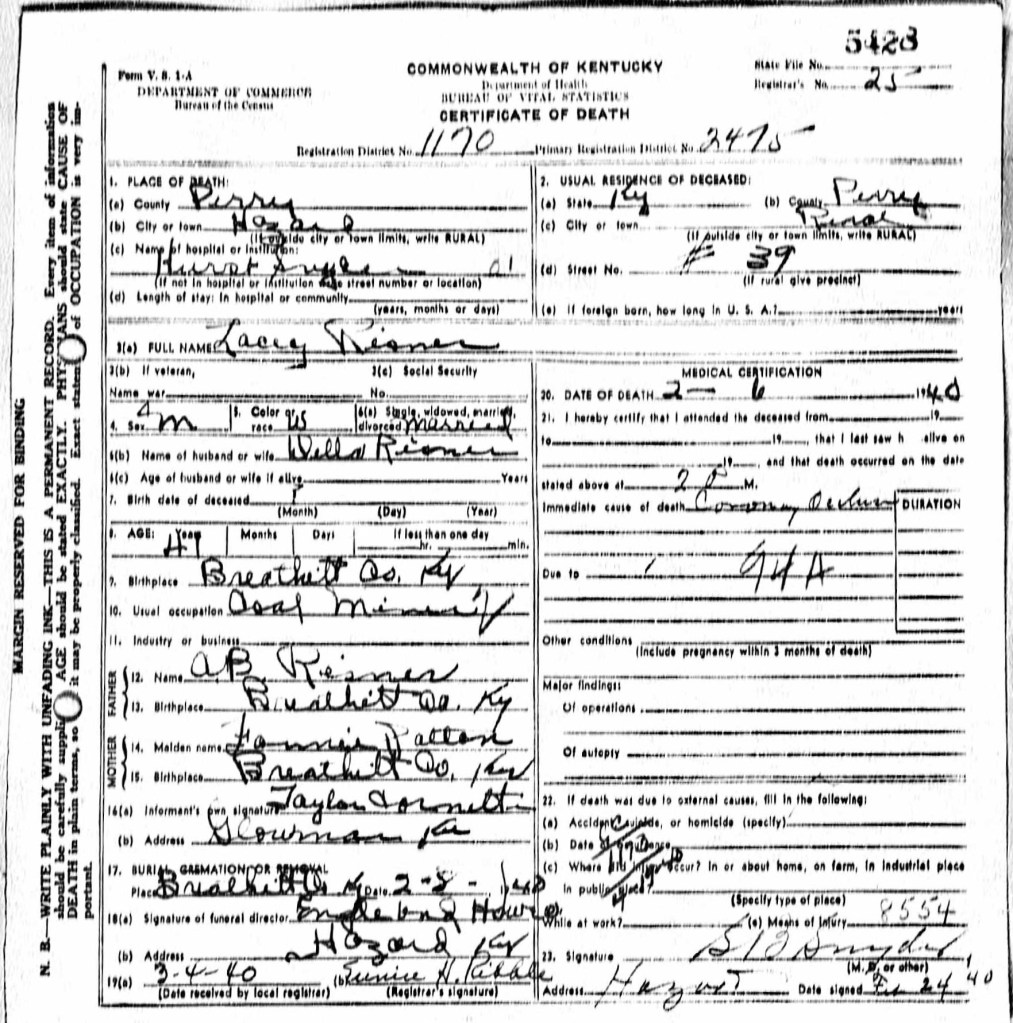 5423
Form V. S. 1-A
DEPARTMENT OF COMMERCE
Bureau of the Census
COMMONWEALTH OF KENTUCKY
Department of Health
BUREAU OF VITAL STATISTICS
CERTIFICATE OF DEATH
State File No.
Registrar's No. 25
Registration District No. 1170 Primary Registration District No. 2475
MARGIN RESERVED FOR BINDING
N. B.—WRITE PLAINLY WITH UNFADING INK—THIS IS A PERMANENT RECORD. Every item of information
should be carefully supplied. AGE should be stated EXACTLY. PHYSICIANS should state CAUSE OF
DEATH in plain terms, so it may be properly classified. Exact statement of OCCUPATION is very im-
portant.
1. PLACE OF DEATH:
(a) County Perry
(b) City or town Hazard
(If outside city or town limits, write RURAL)
(c) Name of hospital or institution:
Hurst
(If not in hospital or institution write street number or location)
(d) Length of stay: In hospital or community
(years, months or days)
2. USUAL RESIDENCE OF DECEASED:
(a) State Ky (b) County Perry
(c) City or town Rural
(If outside city or town limits, write RURAL)
(d) Street No. # 39
(If rural give precinct)
(e) If foreign born, how long in U. S. A.? years
3(a) FULL NAME Lacey Risner
3(b) If veteran,
Name war
3(c) Social Security
No.
4. Sex M
5. Color or race W
6(a) Single, widowed, married, divorced Married
6(b) Name of husband or wife Della Risner
6(c) Age of husband or wife if alive Years
7. Birth date of deceased
(Month) (Day) (Year)
8. AGE: Years 47 Months Days If less than one day
hr. min.
9. Birthplace Breathitt Co. Ky
10. Usual occupation Coal Mining
11. Industry or business
FATHER
12. Name A.B Risner
13. Birthplace Breathitt Co. Ky
MOTHER
14. Maiden name Fannie Patton
15. Birthplace Breathitt Co. Ky
16(a) Informant's own signature Taylor Cornett
(b) Address Glowmar Ky
17. BURIAL CREMATION OR REMOVAL
Place Breathitt Co Ky Date 2-8-1940
18(a) Signature of funeral director Engle and
(b) Address Hazard Ky
19(a) 3-4-40 (b) Eunice H.
(Date received by local registrar) (Registrar's signature)
MEDICAL CERTIFICATION
20. DATE OF DEATH 2- 6 1940
21. I hereby certify that I attended the deceased from 19
to 19, that I last saw h alive on
19, and that death occurred on the date
stated above at 2 P M.
Immediate cause of death Coronary Occlusion
DURATION
Due to 94A
Other conditions
(Include pregnancy within 3 months of death)
Major findings:
Of operations
Of autopsy
22. If death was due to external causes, fill in the following:
(a) Accident, suicide, or homicide (specify)
(b) Date of occurrence
(c) Where did injury occur? In or about home, on farm, in industrial place
in public place?
(Specify type of place)
While at work? (e) Means of injury 8554
23. Signature Snyder
(M. D. or other)
Address Hazard Date signed Feb 24 40